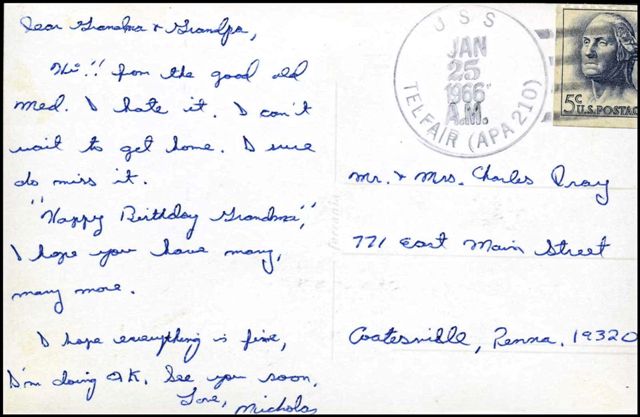 Dear Grandma & Grandpa,
Hi!! from the good old
Med. I hate it. I can't
wait to get home. I sure
do miss it.
"Happy Birthday Grandma",
I hope you have many,
many more.
I hope everything is fine,
I'm doing OK. See you soon,
Love, Nicholas
USS
JAN
25
1966
A.M.
TELFAIR (APA 210)
5c
U.S. POSTAG
Mr. & Mrs. Charles Pray
771 East Main Street
Coatesville, Penna. 19320